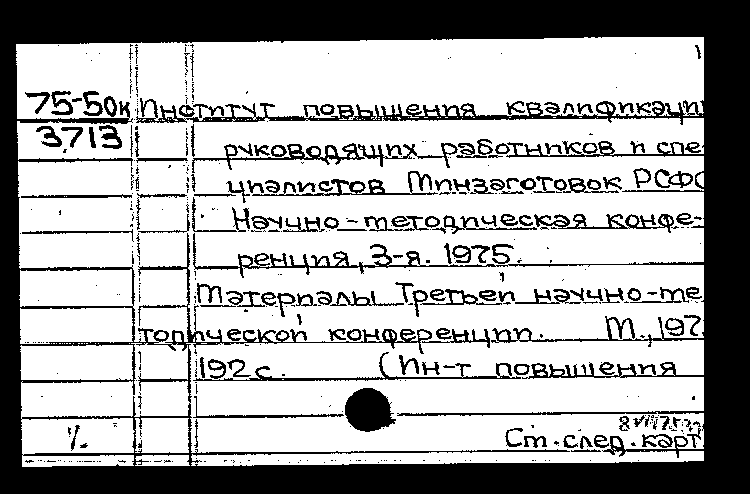 75-50к Институт повышения квалификации
3713 руководящих работников и спе-
циалистов Минзаготовок РСФС
Научно-методическая конфе-
ренция, 3-я. 1975.
Материалы Третьей научно-ме
тодической конференции. М., 197
192 с. (Ин-т повышения
См. след. карт